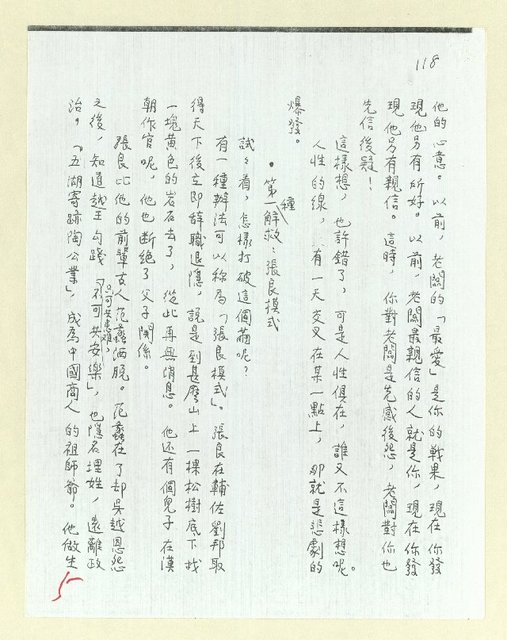 118
他的心意。以前，老闆的「最愛」是你的戰果，現在你發
現他另有所好。以前，老闆最親信的人就是你，現在你發
現他另有親信。這時，你對老闆是先感後怨，老闆對你也
先信後疑！
這樣想，也許錯了，可是人性俱在，誰又不這樣想呢。
人性的線，有一天交叉在某一點上，那就是悲劇的
爆發。
•第一種解救：張良模式
試試看，怎樣打破這個繭呢？
有一種辦法可以稱為「張良模式」。張良在輔佐劉邦取
得天下後立即辭職退隱，說是到甚麼山上一棵松樹底下找
一塊黃色的岩石去了，從此再無消息。他还有個兒子在漢
朝作官呢，他也斷絕了父子關係。
張良比他的前輩古人范蠡洒脫。范蠡在了却吳越恩怨
之後，知道越王勾踐「只可共患難，不可共安樂」，也隱名埋姓，遠離政
治。「五湖寄蹟陶公業」，成為中國商人的祖師爺。他做生
5